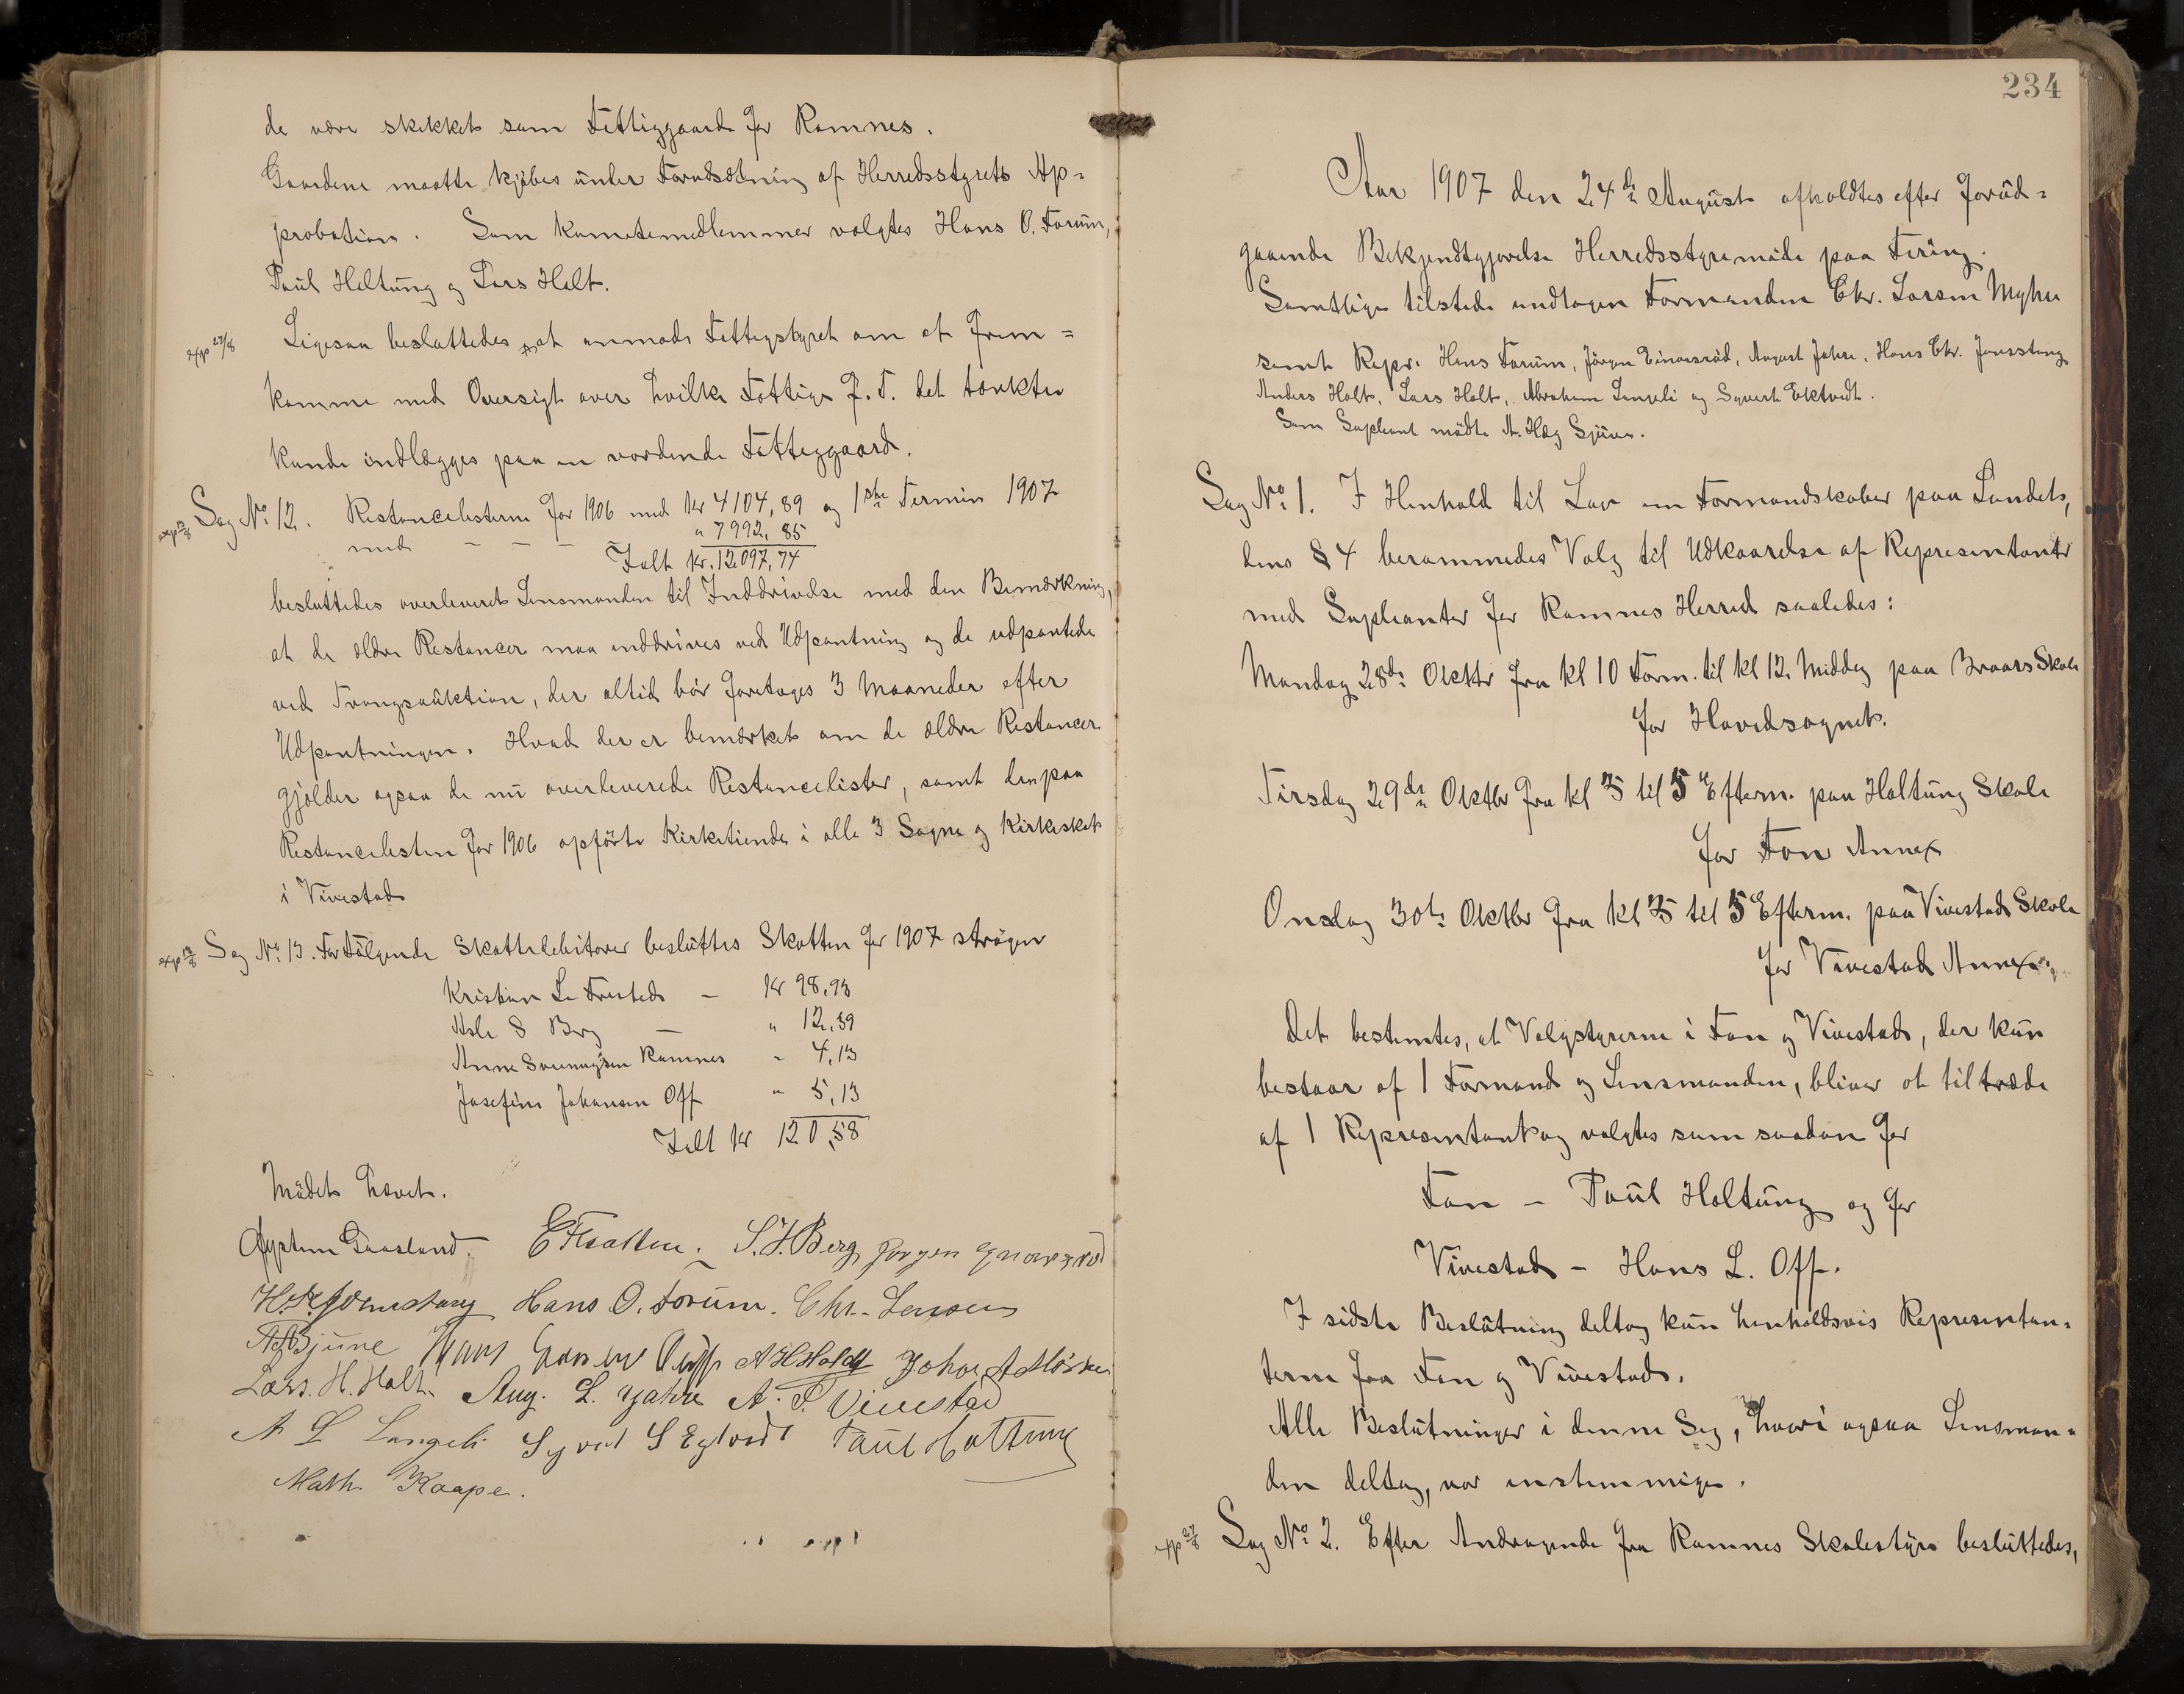 de være skikket som Fattiggaard for Ramnes.
Gaardene maatte kjöbes under Forudsætning af Herredsstyrets Ap=
probation. Som kometemedlemmer valgtes Hans O. Forum,
Paul Holtung og Lars Holt.
exp 27/8 Ligesaa besluttedes at anmode Fattigstyret om at frem=
komme med Oversigt over hvilke Fattige f. T. det tænkte
kunde indlægges paa en vordende Fattiggaard.
Sag No 12. Restancelisterne for 1906 med kr 4104,89 og 1ste Termin 1907
med — — — — " 7992,85
Ialt kr. 12097,74
besluttedes overleveret Lensmanden til Inddrivelse med den Bemærkning,
at de ældre Restancer maa inddrives ved Udpantning og de udpantede
ved Tvangsauktion, der altid bör foretages 3 Maaneder efter
Udpantningen. Hvad der er bemærket om de ældre Restancer
gjælder ogsaa de nu overleverede Restancelister, samt den paa
Restancelisten for 1906 opförte Kirketiende i alle 3 Sogne og Kirkeskat
i Vivestad
Sag No 13. For Fölgende Skattedebitorer besluttes Skatten for 1907 strögen
Kristian L. Fresteds — kr 98,93
Asle S Berg — " 12,39
Anne Svenugsen Ramnes " 4,13
Josefine Johansen Off " 5,13
Ialt kr 120,58
Mödet hævet.
Øystein Gaasland. E Flaatten. S.J. Berg Jörgen Einarsröd
H. Chr Jonsstang Hans O. Forum. Chr. Larsen
A H Bjune Hans Larsen Off A H Holdt Johan A Mörken
Lars. H. Holt. Aug. L. Jahre A. P. Vivestad
A L Langeli Syvert S Egtvedt Paul Holtung
Math. Kaape.
234
Aar 1907 den 24de August afholdtes efter forud=
gaaende Bekjendtgjørelse Herredsstyremöde paa Furung.
Samtlige tilstede undtagen Formanden Chr. Larsen Myhre
samt Repr. Hans Forum, Jörgen Einarsröd, August Jahre, Hans Chr. Jonsstang
Anders Holt, Lars Holt, Abraham Langeli og Syvert Ektvedt.
Som Supleant mödte A. Hag Sjuve.
Sag No 1. I Henhold til Lov om Formandskaber paa Landet,
dens § 4 berammedes Valg til Udkaarelse af Representanter
med Supleanter for Ramnes Herred saaledes:
Mandag 28de Oktbr fra kl 10 Form. til kl 12 Middag paa Braars Skole
for Hovedsognet.
Tirsdag 29de Oktbr fra kl 3 til 5 Efterm. paa Holtung Skole
for Fon Annex
Onsdag 30te Oktbr fra kl 3 til 5 Efterm. paa Vivestad Skole
for Vivestad Annex.
Det bestemtes, at Valgstyrerne i Fon og Vivestad, der kun
bestaar af 1 Formand og Lensmanden, bliver at tiltræde
af 1 Representant og valgtes som saadan for
Fon – Paul Holtung og for
Vivestad – Hans L. Off.
I sidste Beslutning deltog kun henholdsvis Representan=
terne fra Fon og Vivestad.
Alle Beslutninger i denne Sag, hvori ogsaa Lensman=
den deltog, var enstemmige.
exp 27/8 Sag No 2. Efter Andragende fra Ramnes Skolestyre besluttedes,